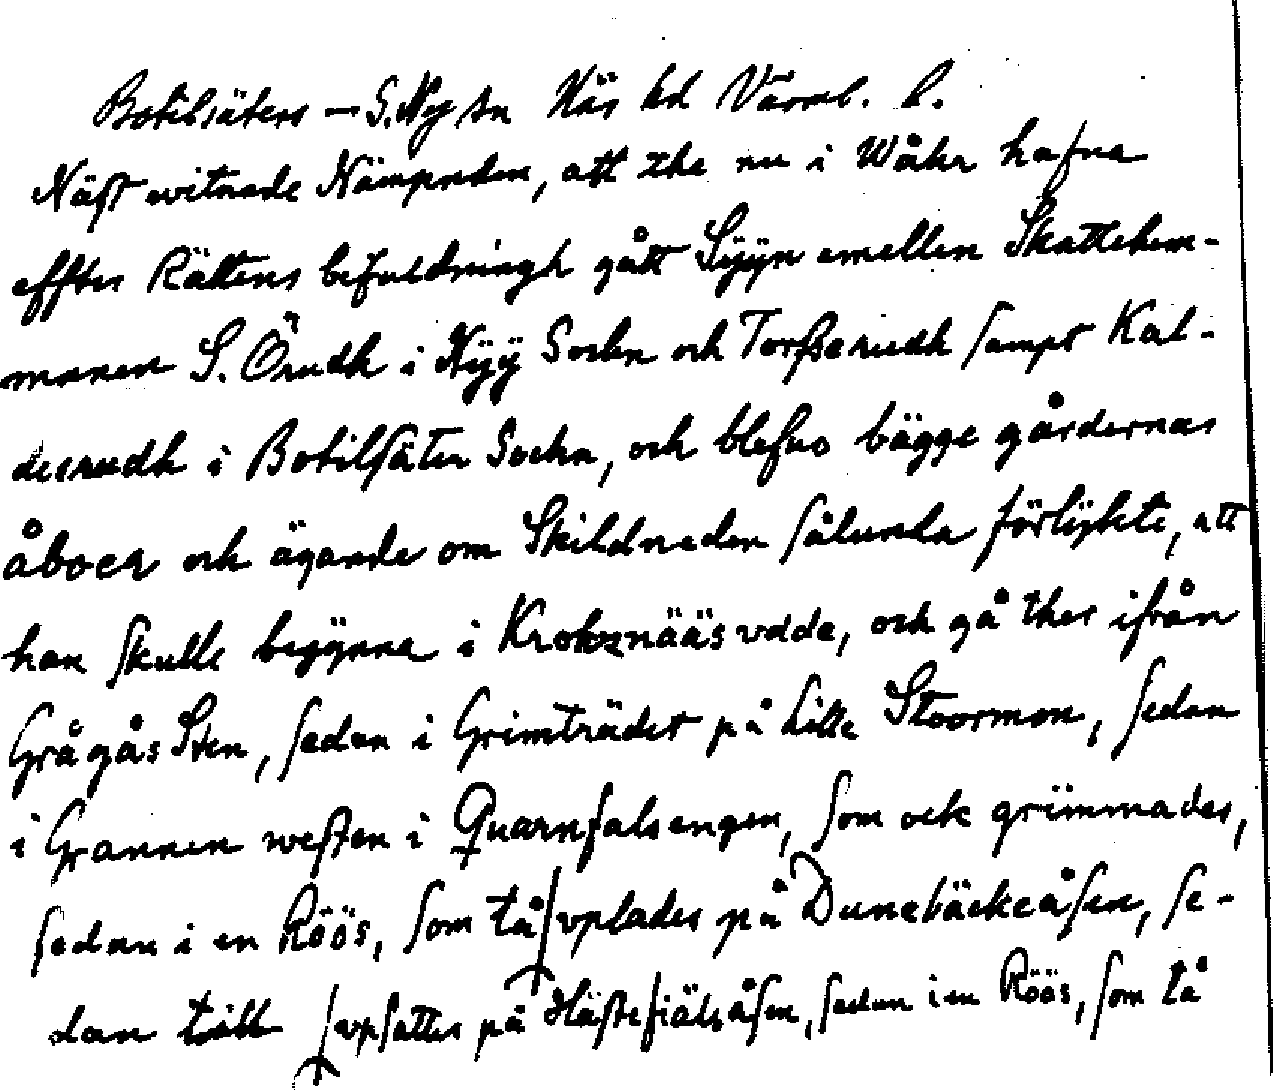 Botilsäters – S. Ny sn Näs hd Värml. l.
Näst witnade Nämpnden, att the nu i Wåhr hafva
effter Rättens befaldningh gått Syyn emellen Skattehem-
manen S. Örudh i Nyy Sochn och Torßerudh sampt Kal-
desrudh i Botilsäter Sochn, och blefuo bägge gårdernas
åboer och ägande om Skildneden sålunda förlijkte, att
han skulle begynna i Kroknääs vdde, och gå ther ifrån
Grågås Sten, sedan i Grimträdet på Lille Stoormon, sedan
i Grannen westen i Quarnfalsengen, som ock grimmades,
sedan i en Röös, som tå vplades på Dunebäckeåsen, se-
dan till vpsattes på Hästefiälsåsen, sedan i en Röös, som tå